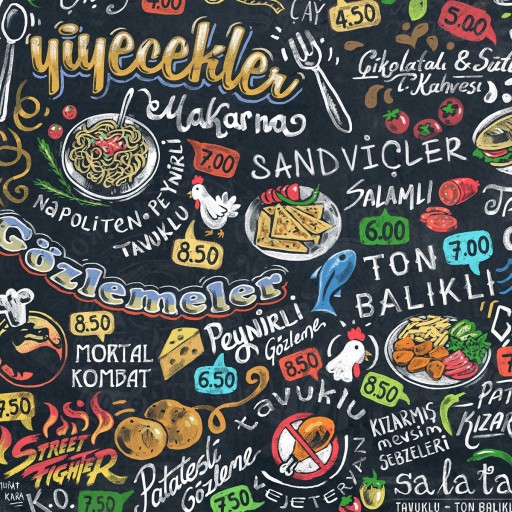 4.00
ÇAY
4.50
5.00
yiyecekler
Çikolatalı & Süt
T. Kahvesi
Makarna
7.00
SANDVİÇLER
NAPOLİTEN • PEYNİRLİ
TAVUKLU
8.50
SALAMLI
6.00
Gözlemeler
TON
BALIKLI
7.00
8.50
MORTAL
KOMBAT
PEYNİRLİ
Gözleme
6.50
8.50
tavuklu
8.50
7.50
STREET
FIGHTER
K.O.
7.50
Patatesli
Gözleme
7.50
VEJETERYAN
KIZARMIŞ
mevsim
SEBZELERİ
PAT
KIZAR
salata
TAVUKLU - TON BALIKL
MURAT
KARA